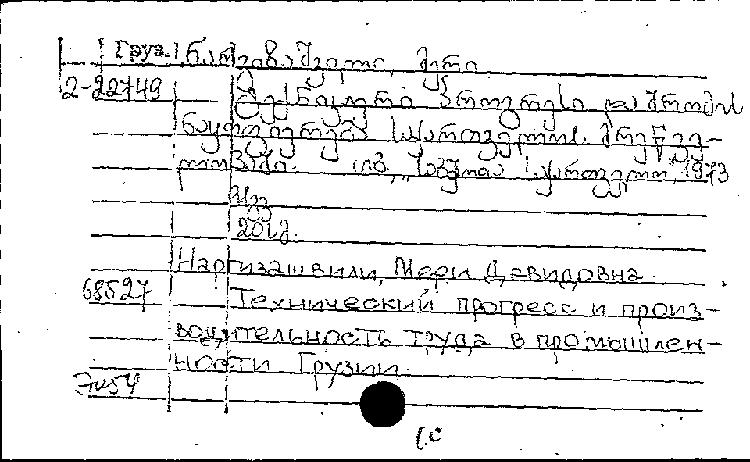 Груз. ნარგიზაშვილი, მერი.
2-22749 ტექნიკური პროგრესი და შრომის
ნაყოფიერება საქართველოს მრეწვე-
ლობაში. თბ., „საბჭოთა საქართველო", 1973
202 გ.
Наргизашвили, Мери Давидовна
68527 Технический прогресс и произ-
водительность труда в промышлен-
ности Грузии.